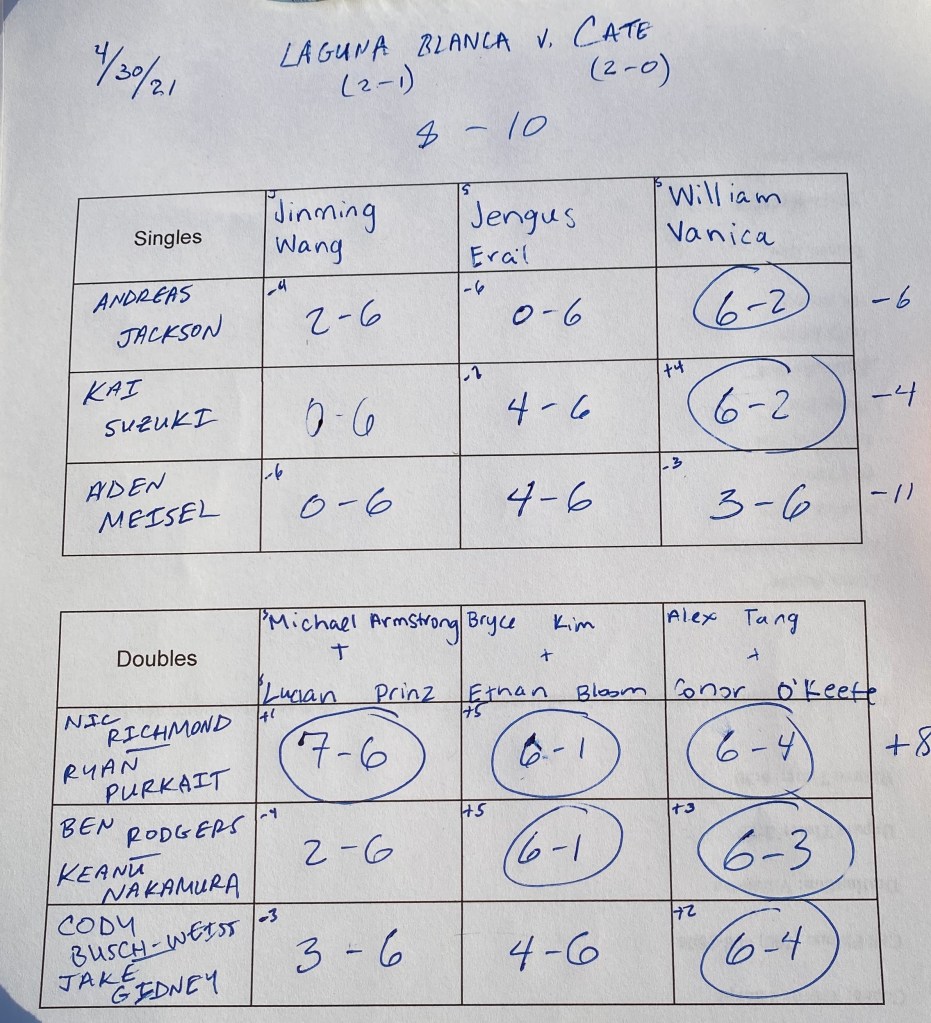 4/30/21
LAGUNA BLANCA v. CATE
(2-1) (2-0)
8 - 10
Singles
5 Jinming
Wang
5 Jengus
Erail
5 William
Vanica
ANDREAS
JACKSON
-4 2-6
-6 0-6
6-2
-6
KAI
SUZUKI
0-6
-2 4-6
+4 6-2
-4
ADEN
MEISEL
-6 0-6
4-6
-3 3-6
-11
Doubles
Michael Armstrong
+
Lucian Prinz
Bryce Kim
+
Ethan Bloom
Alex Tang
+
Conor O'Keefe
NIC
RICHMOND
RYAN
PURKAIT
+1 7-6
+5 6-1
6-4
+8
BEN RODGERS
KEANU
NAKAMURA
-4 2-6
+5 6-1
+3 6-3
CODY
BUSCH-WEISS
JAKE
GIDNEY
-3 3-6
4-6
+2 6-4